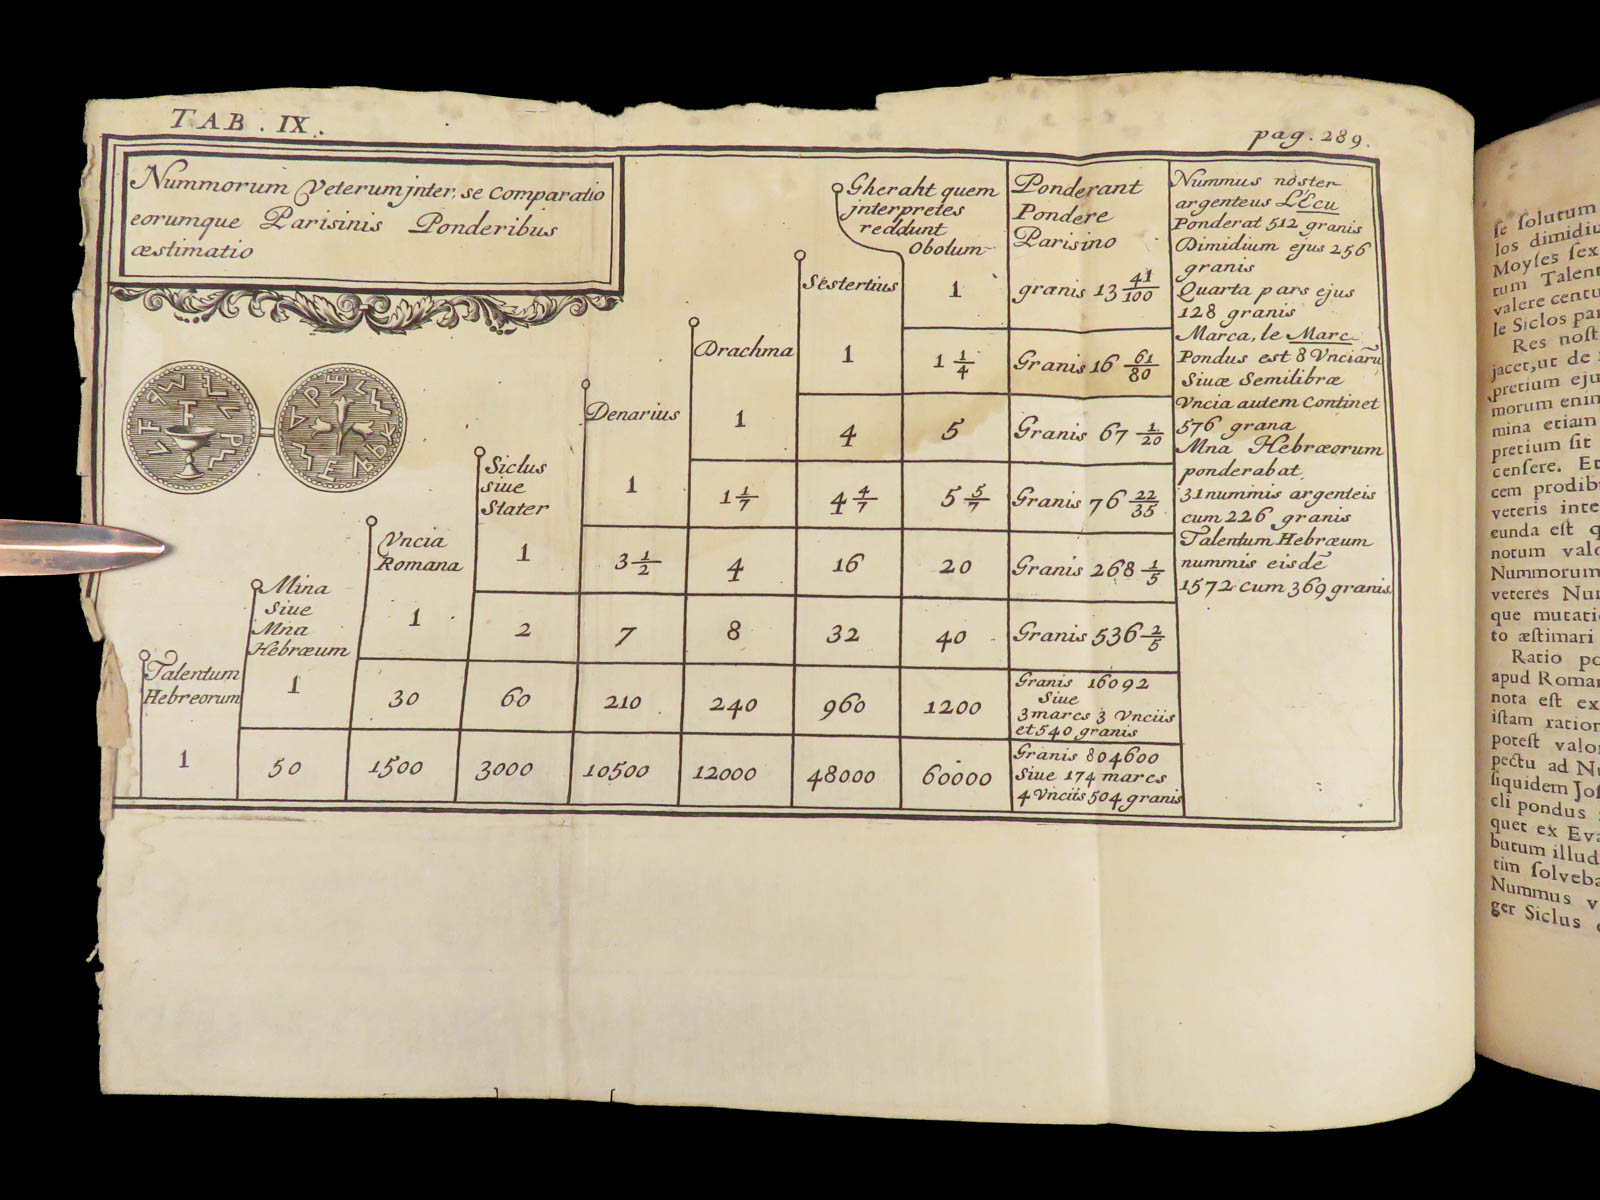 TAB. IX.
pag. 289.
Nummorum Veterum jnter. se Comparatio
eorumque Parisinis Ponderibus
æstimatio
Gheraht quem
jnterpretes
reddunt
Obolum
1
Ponderant
Pondere
Parisino
granis 13 41/100
Sèstertius
1
1 1/4
Granis 16 61/80
Drachma
1
4
5
Granis 67 1/20
Denarius
1
1 1/7
4 4/7
5 5/7
Granis 76 22/35
Siclus
siue
Stater
1
3 1/2
4
16
20
Granis 268 1/5
Vncia
Romana
1
2
7
8
32
40
Granis 536 2/5
Mina
Siue
Mna
Hebræum
1
30
60
210
240
960
1200
Granis 16092
Siue
3 marcs 3 Vnciis
et 540 granis
Talentum
Hebreorum
1
50
1500
3000
10500
12000
48000
60000
Granis 804600
Siue 174 marcs
4 Vnciis 504 granis
Nummus nòster
argenteus L'Ecu
Ponderat 512 granis
Dimidium ejus 256
granis
Quarta pars ejus
128 granis
Marca, le Marc
Pondus est 8 Vnciarũ
Siuæ Semilibræ
Vncia autem Continet
576 grana
Mna Hebræorum
ponderabat
31 nummis argenteis
cum 226 granis
Talentum Hebræum
nummis eisdẽ
1572 cum 369 granis
se solutum
los dimidiu
Moyses sex
tum Talent
valere centu
le Siclos par
Res nost
jacet, ut de
pretium eju
morum enim
mina etiam
pretium sit
censere. Et
cem prodibu
veteris inte
eunda est q
notum valo
Nummorum
veteres Nun
que mutatio
to æstimari
Ratio po
apud Roman
nota est ex
istam ration
potest valor
pectu ad Nu
siquidem Jos
cli pondus
quet ex Eva
butum illud
tim solveba
Nummus v
ger Siclus